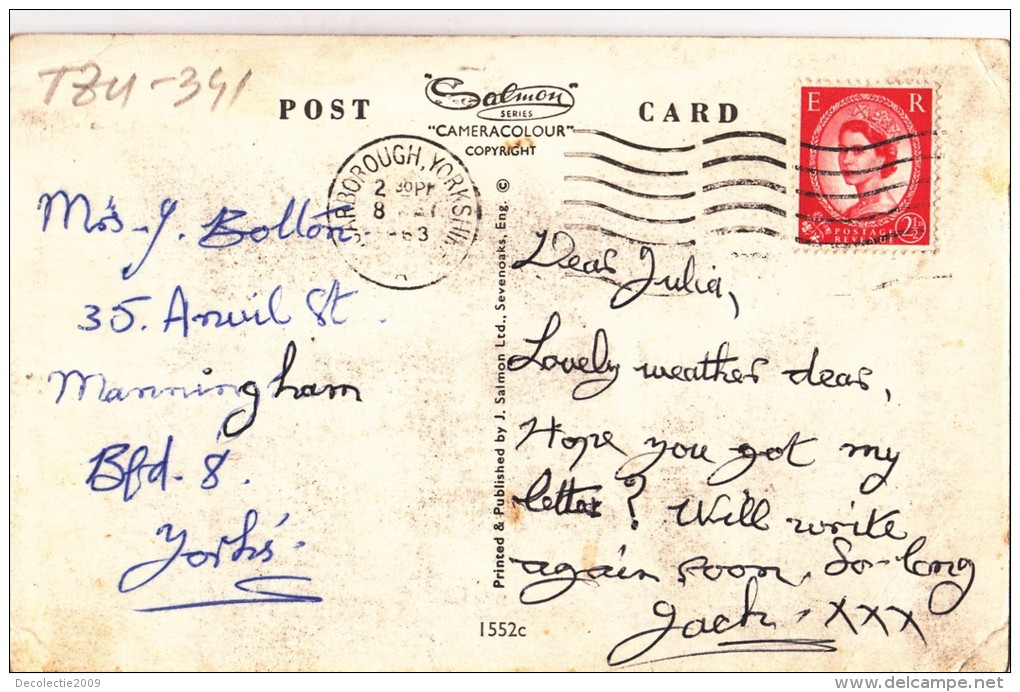 TZU-341
POST CARD
"Salmon"
SERIES
"CAMERACOLOUR"
COPYRIGHT
SCARBOROUGH, YORKSHIRE
2 30PM
8
63
A
E R
POSTAGE
REVENUE
2½
Mrs. J. Bolton.
35. Anvil St.
Manningham
Bfd. 8.
Yorks.
Printed & Published by J. Salmon Ltd., Sevenoaks, Eng. ©
Dear Julia,
Lovely weather dear,
Hope you got my
letter? Will write
again soon. So-long
Jack. xxx
1552c
Decolectie2009
www.delcampe.net